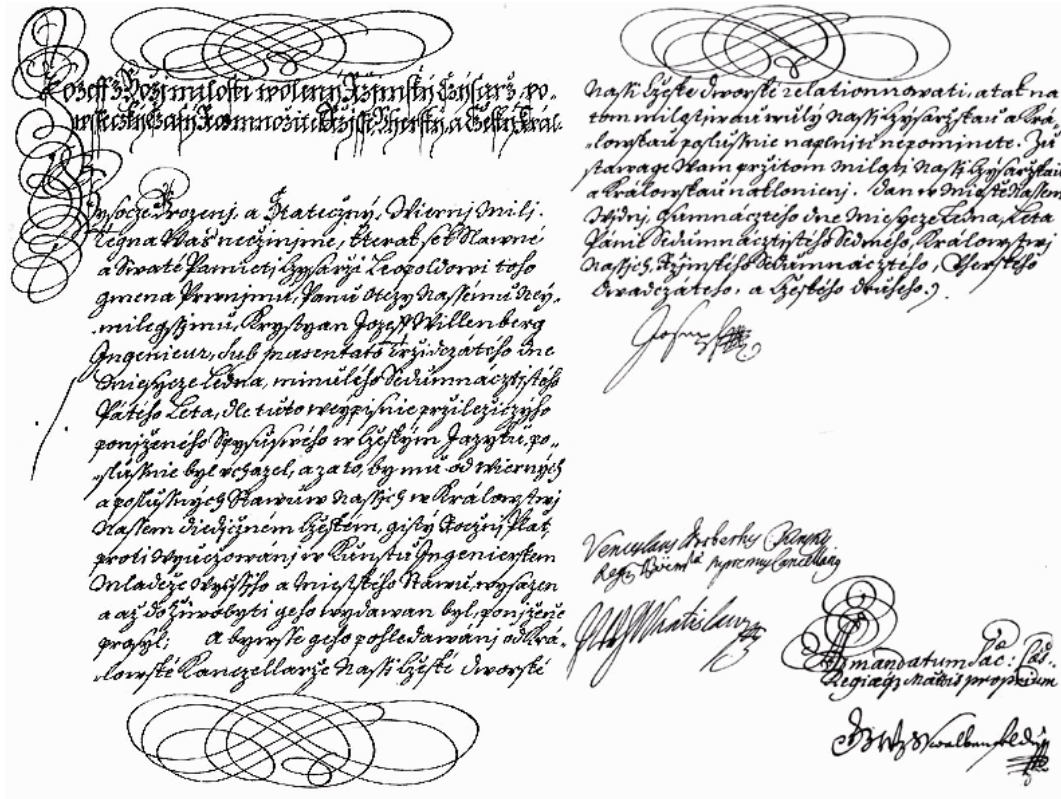 Jozeff z Boži milosti wolený Ržimský Czýsarž, po-
wsseczky Czasý Rozmnožitel Ržisse, Uherský, a Cžeský Král.
Wysocze Urozenj, a Statečzný, Wiernj Milj.
Tegna Wás nečzinjme, kterak jest Slawné
a Swaté Pamieti Czysarži Leopoldowi toho
gmena Prwnjmu, Panu Otczy Nassemu Ney-
milegssjmu, Krystyan Jozeff Willenberg
Ingenieur, sub praesentato Tržidczátého dne
Miesycze Ledna, minulého Sedumnácztistého
Pátého Léta, dle tuto w exypisnie přiležiczýho
ponjženého Spysu swého w Cžeským Jazyku, po-
slussnie byl vchazel, a za to, by mu od wiernych
a poslussných Stawůw Nassjch w Královstwj
Nassem diedičzném Cžeském, gistý Rocžnj Plat,
proti wyučzowánj w Kunstu Ingenierskem
Mládeže wyssjho a Miestského Stawu, wysazen
a až do žiwobyti geho wydawan byl, ponjženie
prosyl; A bywsse geho pohledawanj od Krá-
lowské Kanczellarže Nassj Cžeské Dworské
Nassj Cžeské Dworské relationnowati, a tak na
tom milostiwau wůly Nassj Czýsaržskau a Krá-
lowskau poslussnie naplniti nepominete. Zu-
stawage Wam pržitom milostj Nassj Czýsaržskau
a Králowskau naklonienj. Dan w Miestie Nassem
Wýdnj, Ssumnácztého dne Miesycze Ledna, Léta
Pánie Sedumnácztistého Sedmého, Králowstwj
Nassjch, Ržimského Sedumnácztého, Uherského
dwadczátého, a Cžeského druhého.
Joseph
Venceslaus Norbertus Kinsky
Regis Boemiae supremus Cancellarius
Wratislaw
Ad
mandatum Sac: Caes:
Regiaeq Mattis proprium